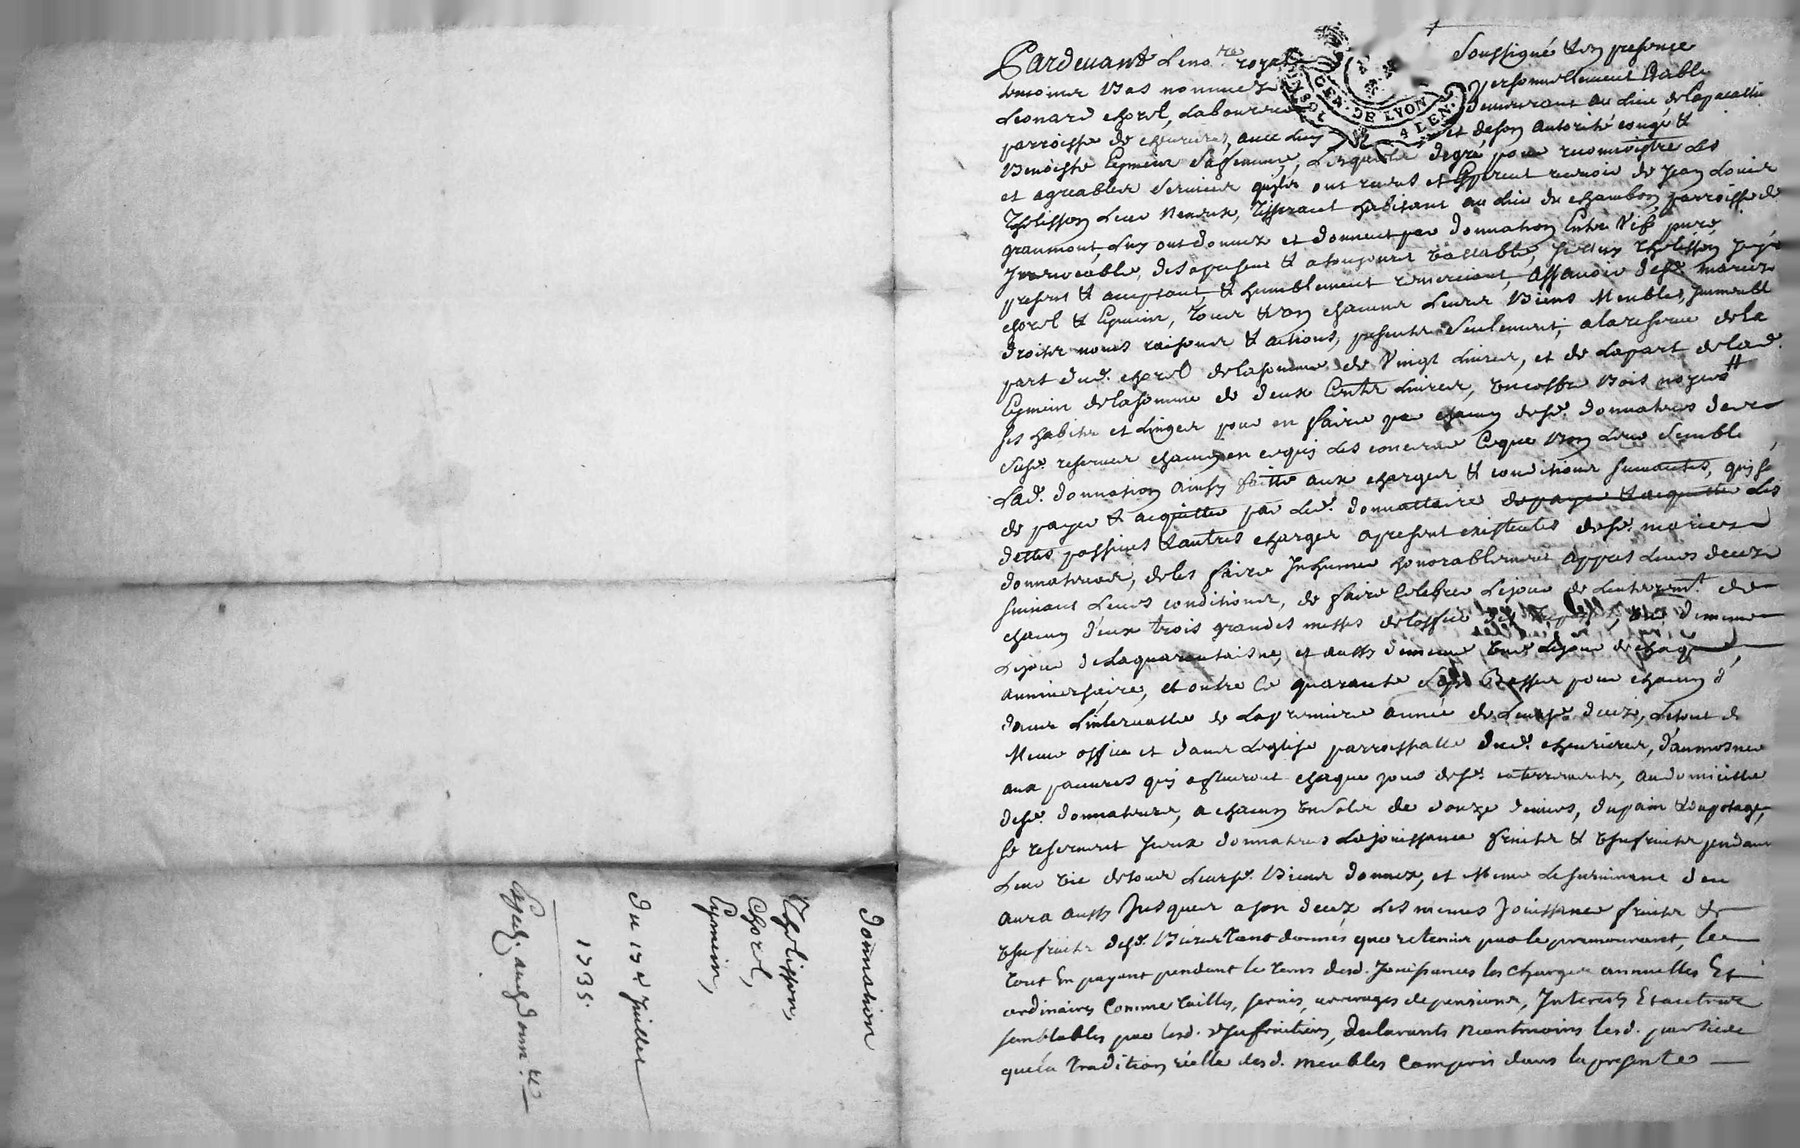 Pardevant Le no.re royal soussigné & en presence
temoins bas nommez personnellement Estably
Leonard chorel, Laboureur demeurant au Lieu de
parroisse de cheurieres, avec Luy et de son autorité congé &
Benoiste Eymein sa femme, Lesquels de gré pour reconnoistre Les
et agreables services qu'ils ont reçus et Esperent recevoir de Jean Louis
Tholisson Leur Neveux, Tisserant habitant au Lieu du chambon, parroisse de
graumont, Luy ont donnez et donnent par donnation Entre Vifs pure
Irrevocable, des apresent & a toujours vallable, Tholisson
present & acceptant, & humblement remerciant, assavoir desd. mariez
chorel & Eymein, tous & un chacuns Leurs Biens Meubles, Immeubles
droits noms raisons & actions, presents seulement, a la reserve de la
part dud. chorel de la somme de Vingt Livres, et de Lapart de lad.
Eymein de la somme de deux Cents Livres, un coffre Bois noyer #
ses habits et Linges pour en faire par chacun desd. donnateurs des
susd. reserves chacun en ce qui Les concerne Ce que bon Leur semble
Lad. donnation ainsy faitte aux charges & conditions suivantes,
de payer & acquitter par Led. donnattaire de payer & acquitter Les
dettes passives & autres charges apresent existentes desd. mariez
donnateurs, de les faire Inhumer honorablement appres Leurs decez
suivant Leurs conditions, de faire Celebrer Lejour de Lenterremt. de
chacun d'eux trois grandes messes de Loffice des
Lejour de La quarantaine, et aussy de meme Lejour de chaque
anniversaire, et outre Ce quarante Messes Basses pour chacun d'
dans L'intervalle de La premiere année de Leursd. decez, Le tout de
Meme office et dans Leglise parroissialle dud. cheurieres, d'aumosner
aux pauvres qui assisteront chaque jour desd. enterrements, au domicille
desd. donnateurs, a chacun un sols de douze deniers, du pain & du potage,
se reservent Iceux donnateurs La jouissance fruits & Usufruits pendant
Leur vie de tous Leursd. Biens donnez, et Meme Le survivant d'eux
aura aussy Jusques a son decez Les memes Jouissance fruits &
Usufruits desd. Biens tant donnés que retenus par le premourant, le
tout En payant pendant le tems desd. Jouissances les charges annuelles Et
ordinaires Comme tailles, servis, arrerages de pensions, Interests Et autres
semblables par lesd. Usufruitiers, declarants neantmoins lesd. parties
que la tradition réelle desd. meubles Compris dans la presente
GEN. DE LYON
4 DEN.
donnation
Tholisson,
Chorel,
Eymein,
du 17e Juillet
1735.